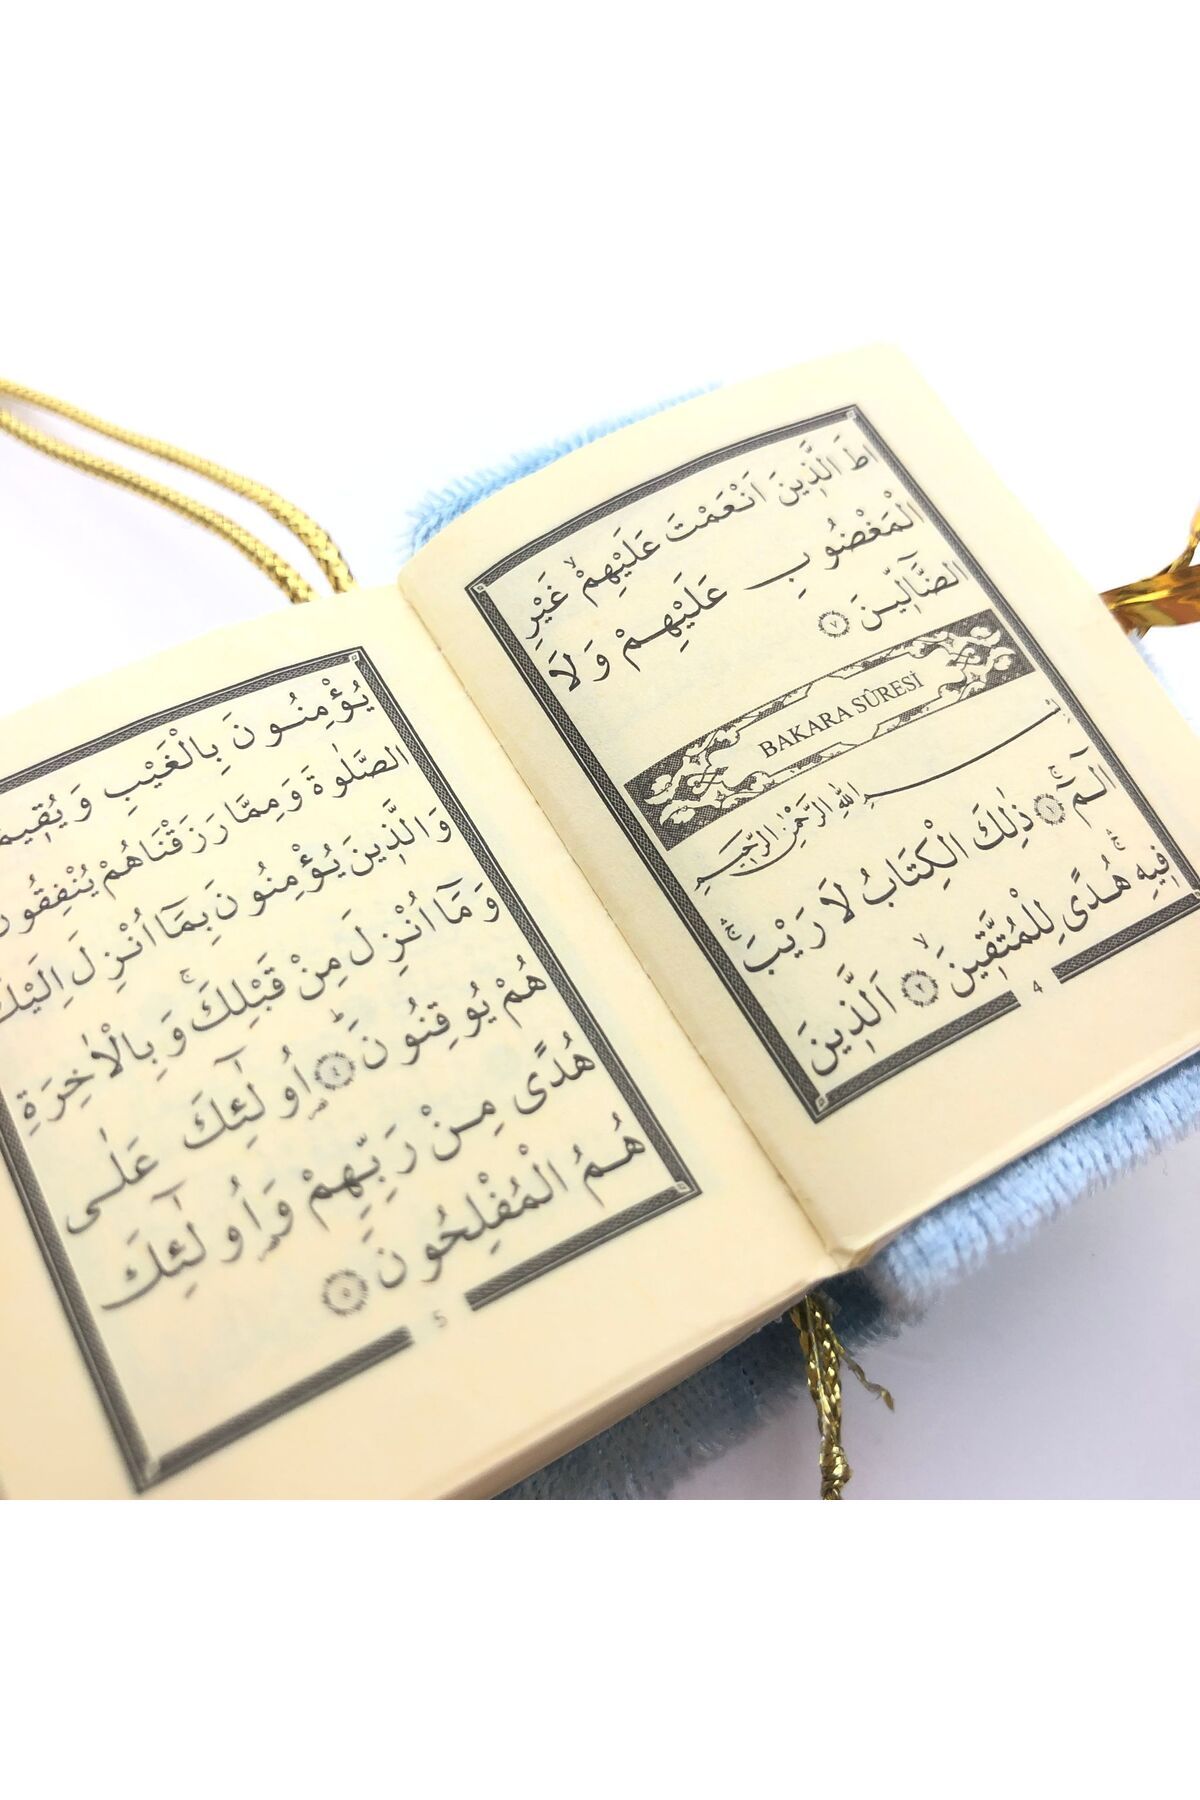 اطَ الَّذ۪ينَ اَنْعَمْتَ عَلَيْهِمْۙ غَيْرِ
الْمَغْضُوبِ عَلَيْهِمْ وَلَا
الضَّٓالّ۪ينَ ﴿٧﴾
BAKARA SÛRESİ
بِسْمِ اللّٰهِ الرَّحْمٰنِ الرَّح۪يمِ
الٓمٓۚ ﴿١﴾ ذٰلِكَ الْكِتَابُ لَا رَيْبَۚۛ
ف۪يهِۚۛ هُدًى لِلْمُتَّق۪ينَۙ ﴿٢﴾ اَلَّذ۪ينَ
4
يُؤْمِنُونَ بِالْغَيْبِ وَيُق۪يم
الصَّلٰوةَ وَمِمَّا رَزَقْنَاهُمْ يُنْفِقُونَ
وَالَّذ۪ينَ يُؤْمِنُونَ بِمَٓا اُنْزِلَ اِلَيْكَ
وَمَٓا اُنْزِلَ مِنْ قَبْلِكَۚ وَبِالْاٰخِرَةِ
هُمْ يُوقِنُونَۜ ﴿٤﴾ اُو۬لٰٓئِكَ عَلٰى
هُدًى مِنْ رَبِّهِمْ وَاُو۬لٰٓئِكَ
هُمُ الْمُفْلِحُونَ ﴿٥﴾
5